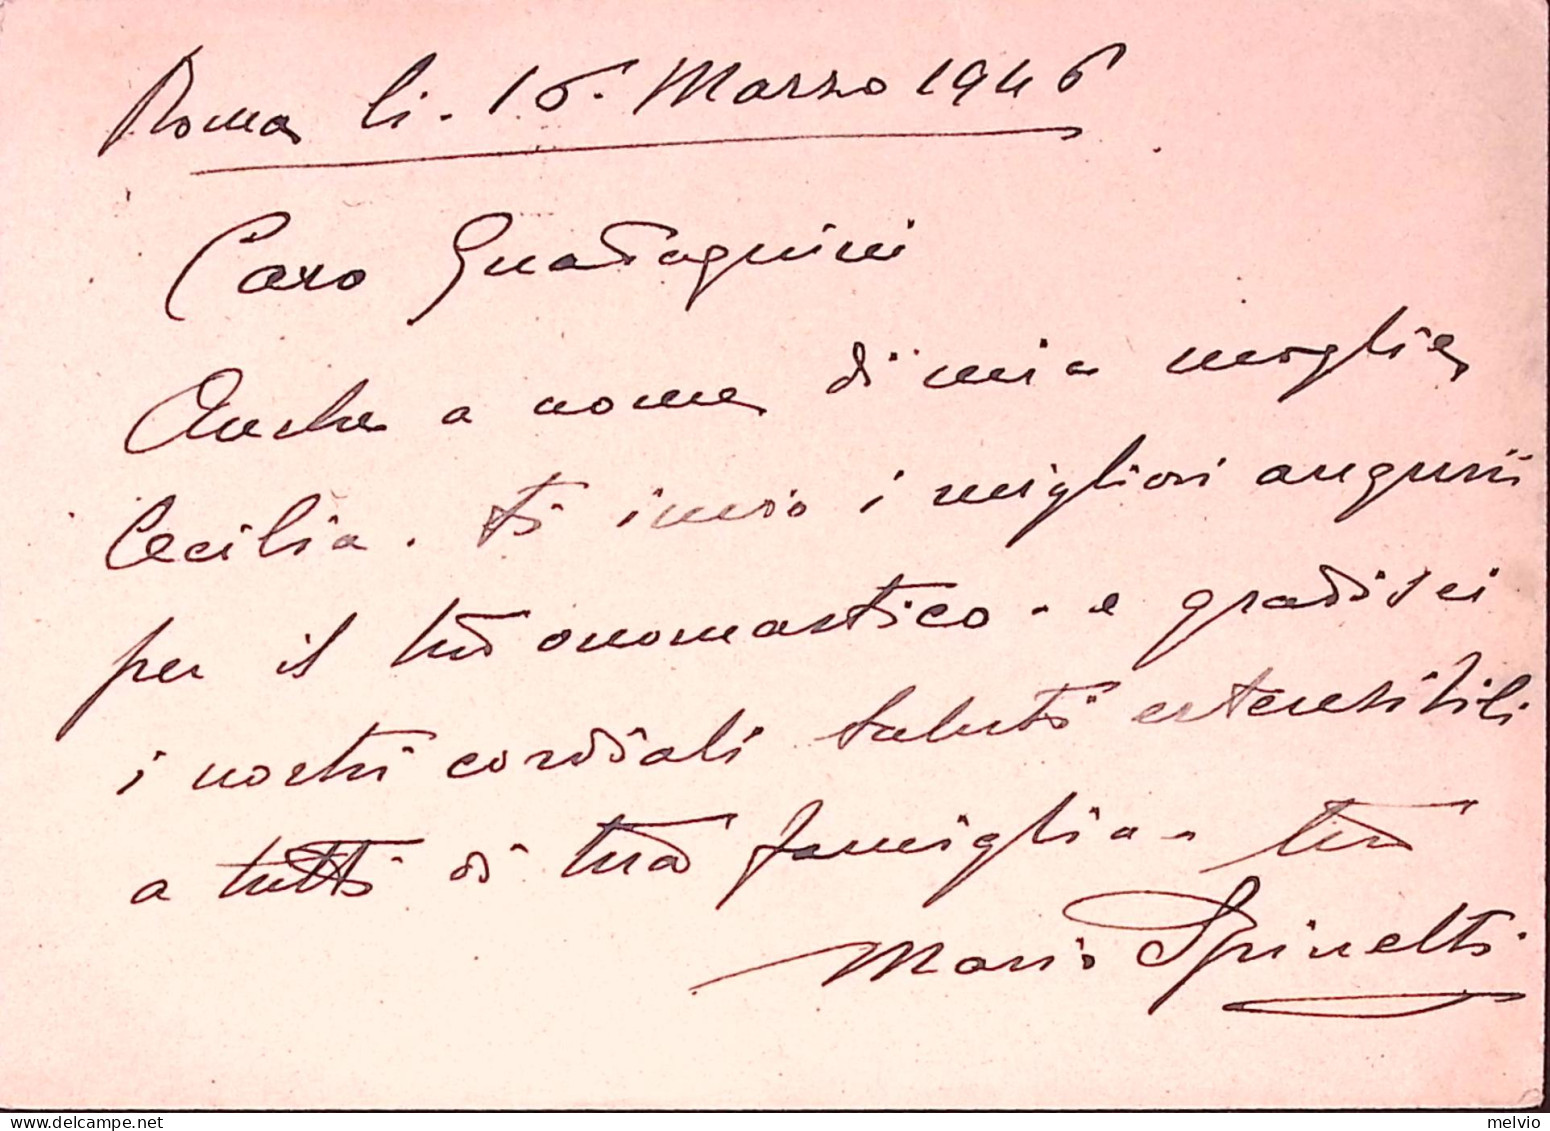 Roma li. 16. Marzo 1946
Caro Guadagnini
Anche a nome di mia moglie
Cecilia. ti invio i migliori augurii
per il tuo onomastico - e gradisci
i nostri cordiali saluti estensibili
a tutti di tua famiglia - tuo
Mario Spinelti
melvio